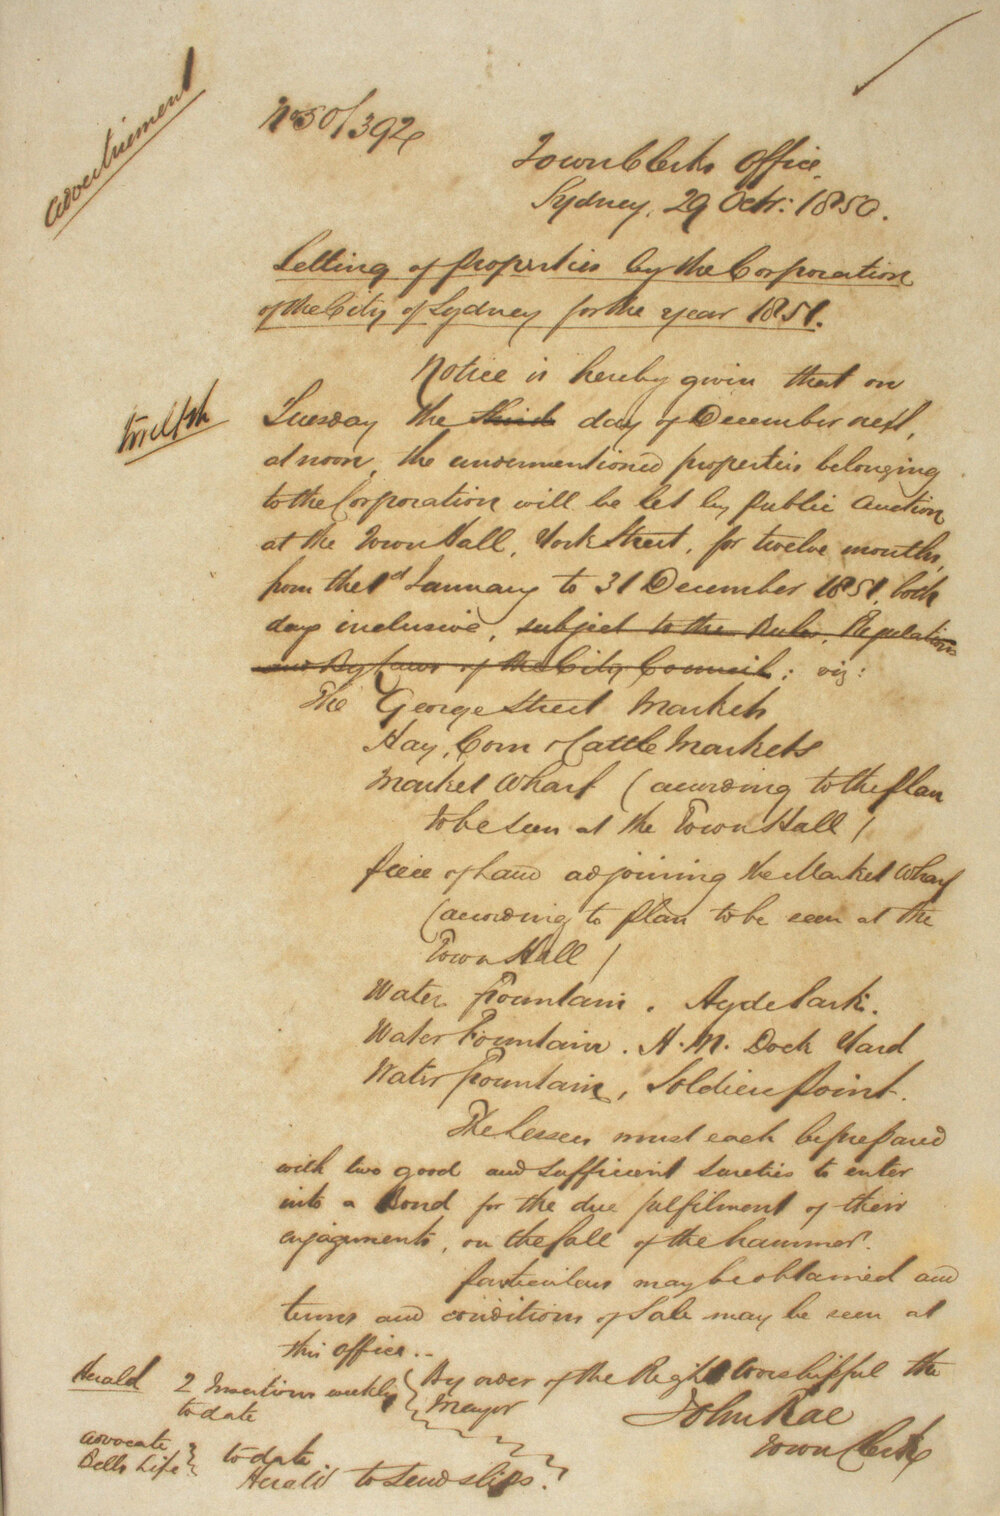 Advertisement
No 50/392
Town Clerk's Office,
Sydney, 29 Octr: 1850.
Letting of properties by the Corporation
of the City of Sydney for the year 1851.
Notice is hereby given that on
twelfth
Tuesday the third day of December next,
at noon, the undermentioned properties belonging
to the Corporation will be let by Public Auction
at the Town Hall, York Street, for twelve months,
from the 1st January to 31 December 1851, both
days inclusive, subject to the Rules, Regulations
and By Laws of the City Council; viz:
The George Street Markets
Hay, Corn & Cattle Markets
Market Wharf (according to the plan
to be seen at the Town Hall)
piece of Land adjoining the Market Wharf
(according to plan to be seen at the
Town Hall)
Water Fountain. Hyde Park.
Water Fountain. H. M. Dock Yard
Water Fountain, Soldiers Point.
The Lessees must each be prepared
with two good and sufficient sureties to enter
into a Bond for the due fulfilment of their
engagements, on the fall of the hammer.
Particulars may be obtained and
terms and conditions of Sale may be seen at
this office..
By order of the Right Worshipful the
Mayor
John Rae
Town Clerk
Herald 2 Insertions weekly
to date
Advocate
Bells Life } to date
Herald to send slips.